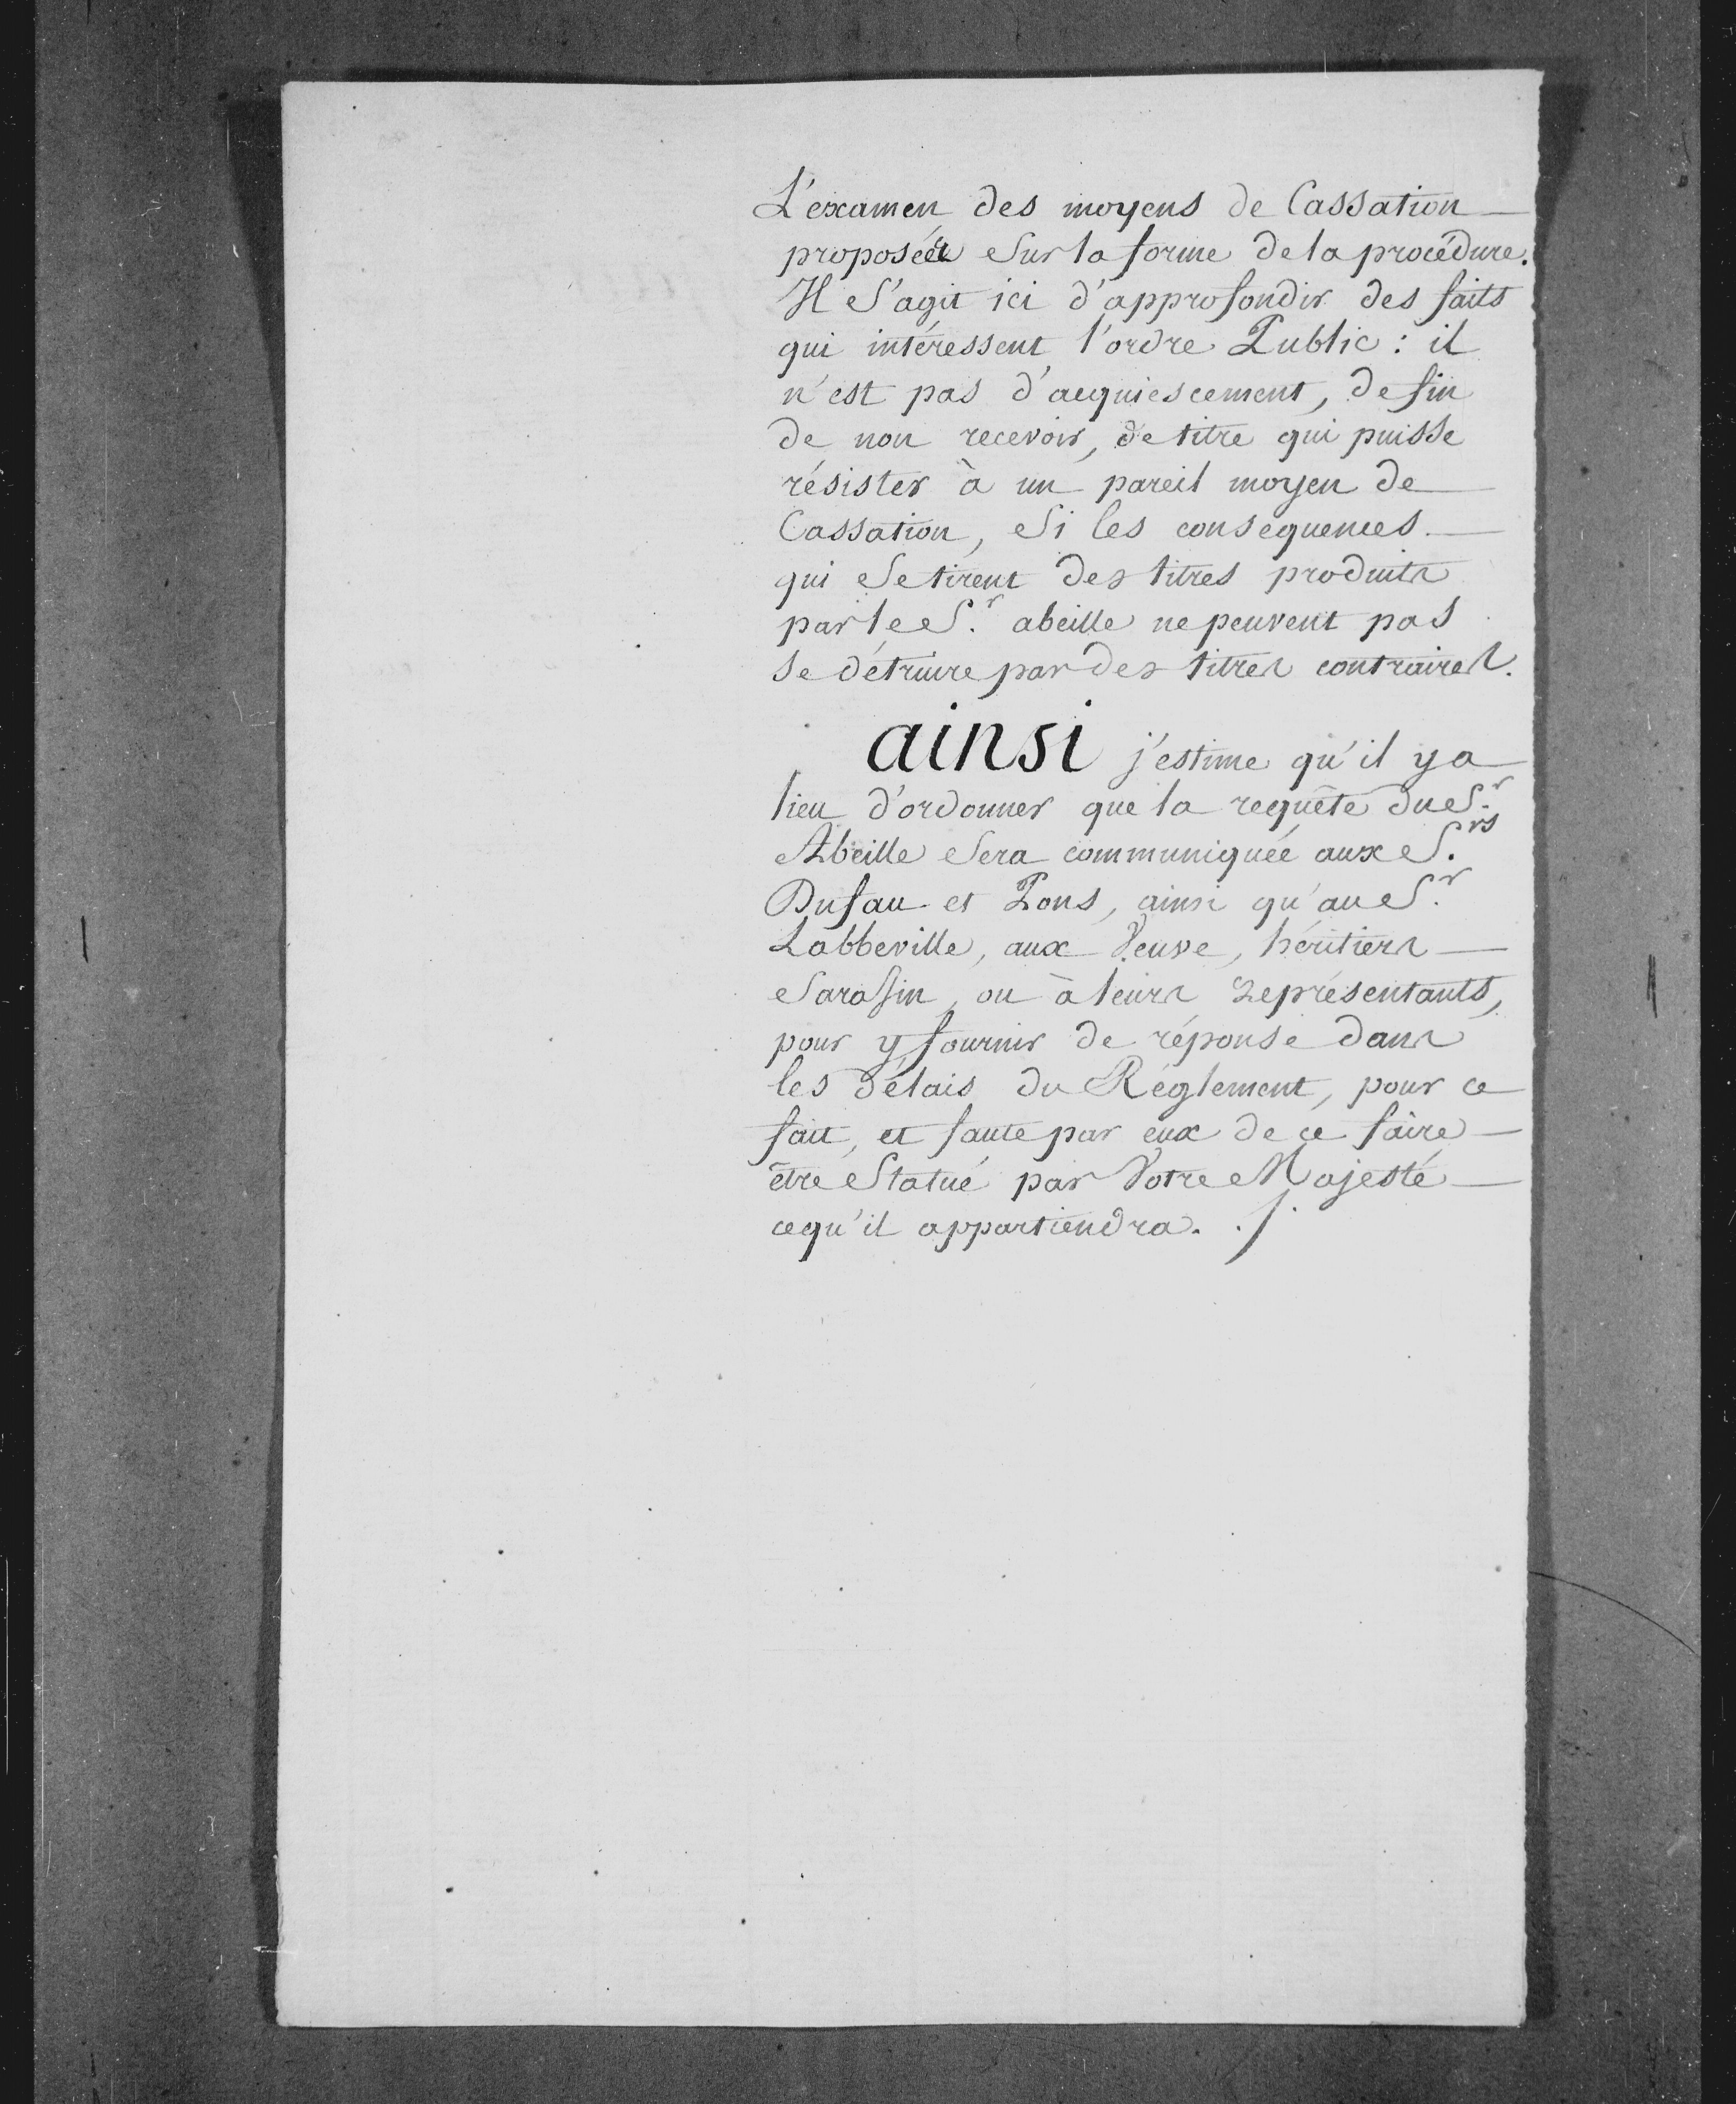 L'examen des moyens de Cassation
proposées sur la forme de la procédure.
Il s'agit ici d'approfondir des faits
qui intéressent l'ordre Public : il
n'est pas d'acquiescement, de fin
de non recevoir, de titre qui puisse
résister à un pareil moyen de
Cassation, Si les conséquences
qui se tirent des titres produits
par le S.r abeille ne peuvent pas
se détruire par des titres contraires.
ainsi j'estime qu'il y a
lieu d'ordonner que la requête du S.r
Abeille sera communiquée aux S.rs
Dufau et Pons, ainsi qu'au S.r
Labbeville, aux Veuve, héritiers
Sarasin, ou à leurs Représentants,
pour y fournir de réponse dans
les délais du Réglement, pour ce
fait, et faute par eux de ce faire
être Statué par Votre Majesté
ce qu'il appartiendra. ./.